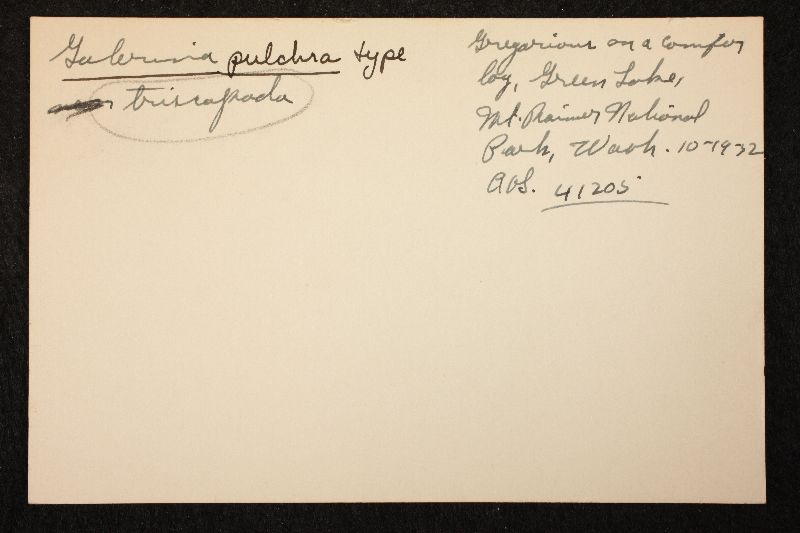 Galerina pulchra type
triscapoda
Gregarious on a conifer
log, Green Lake,
Mt. Rainier National
Park, Wash. 10-19-52
AHS. 41205